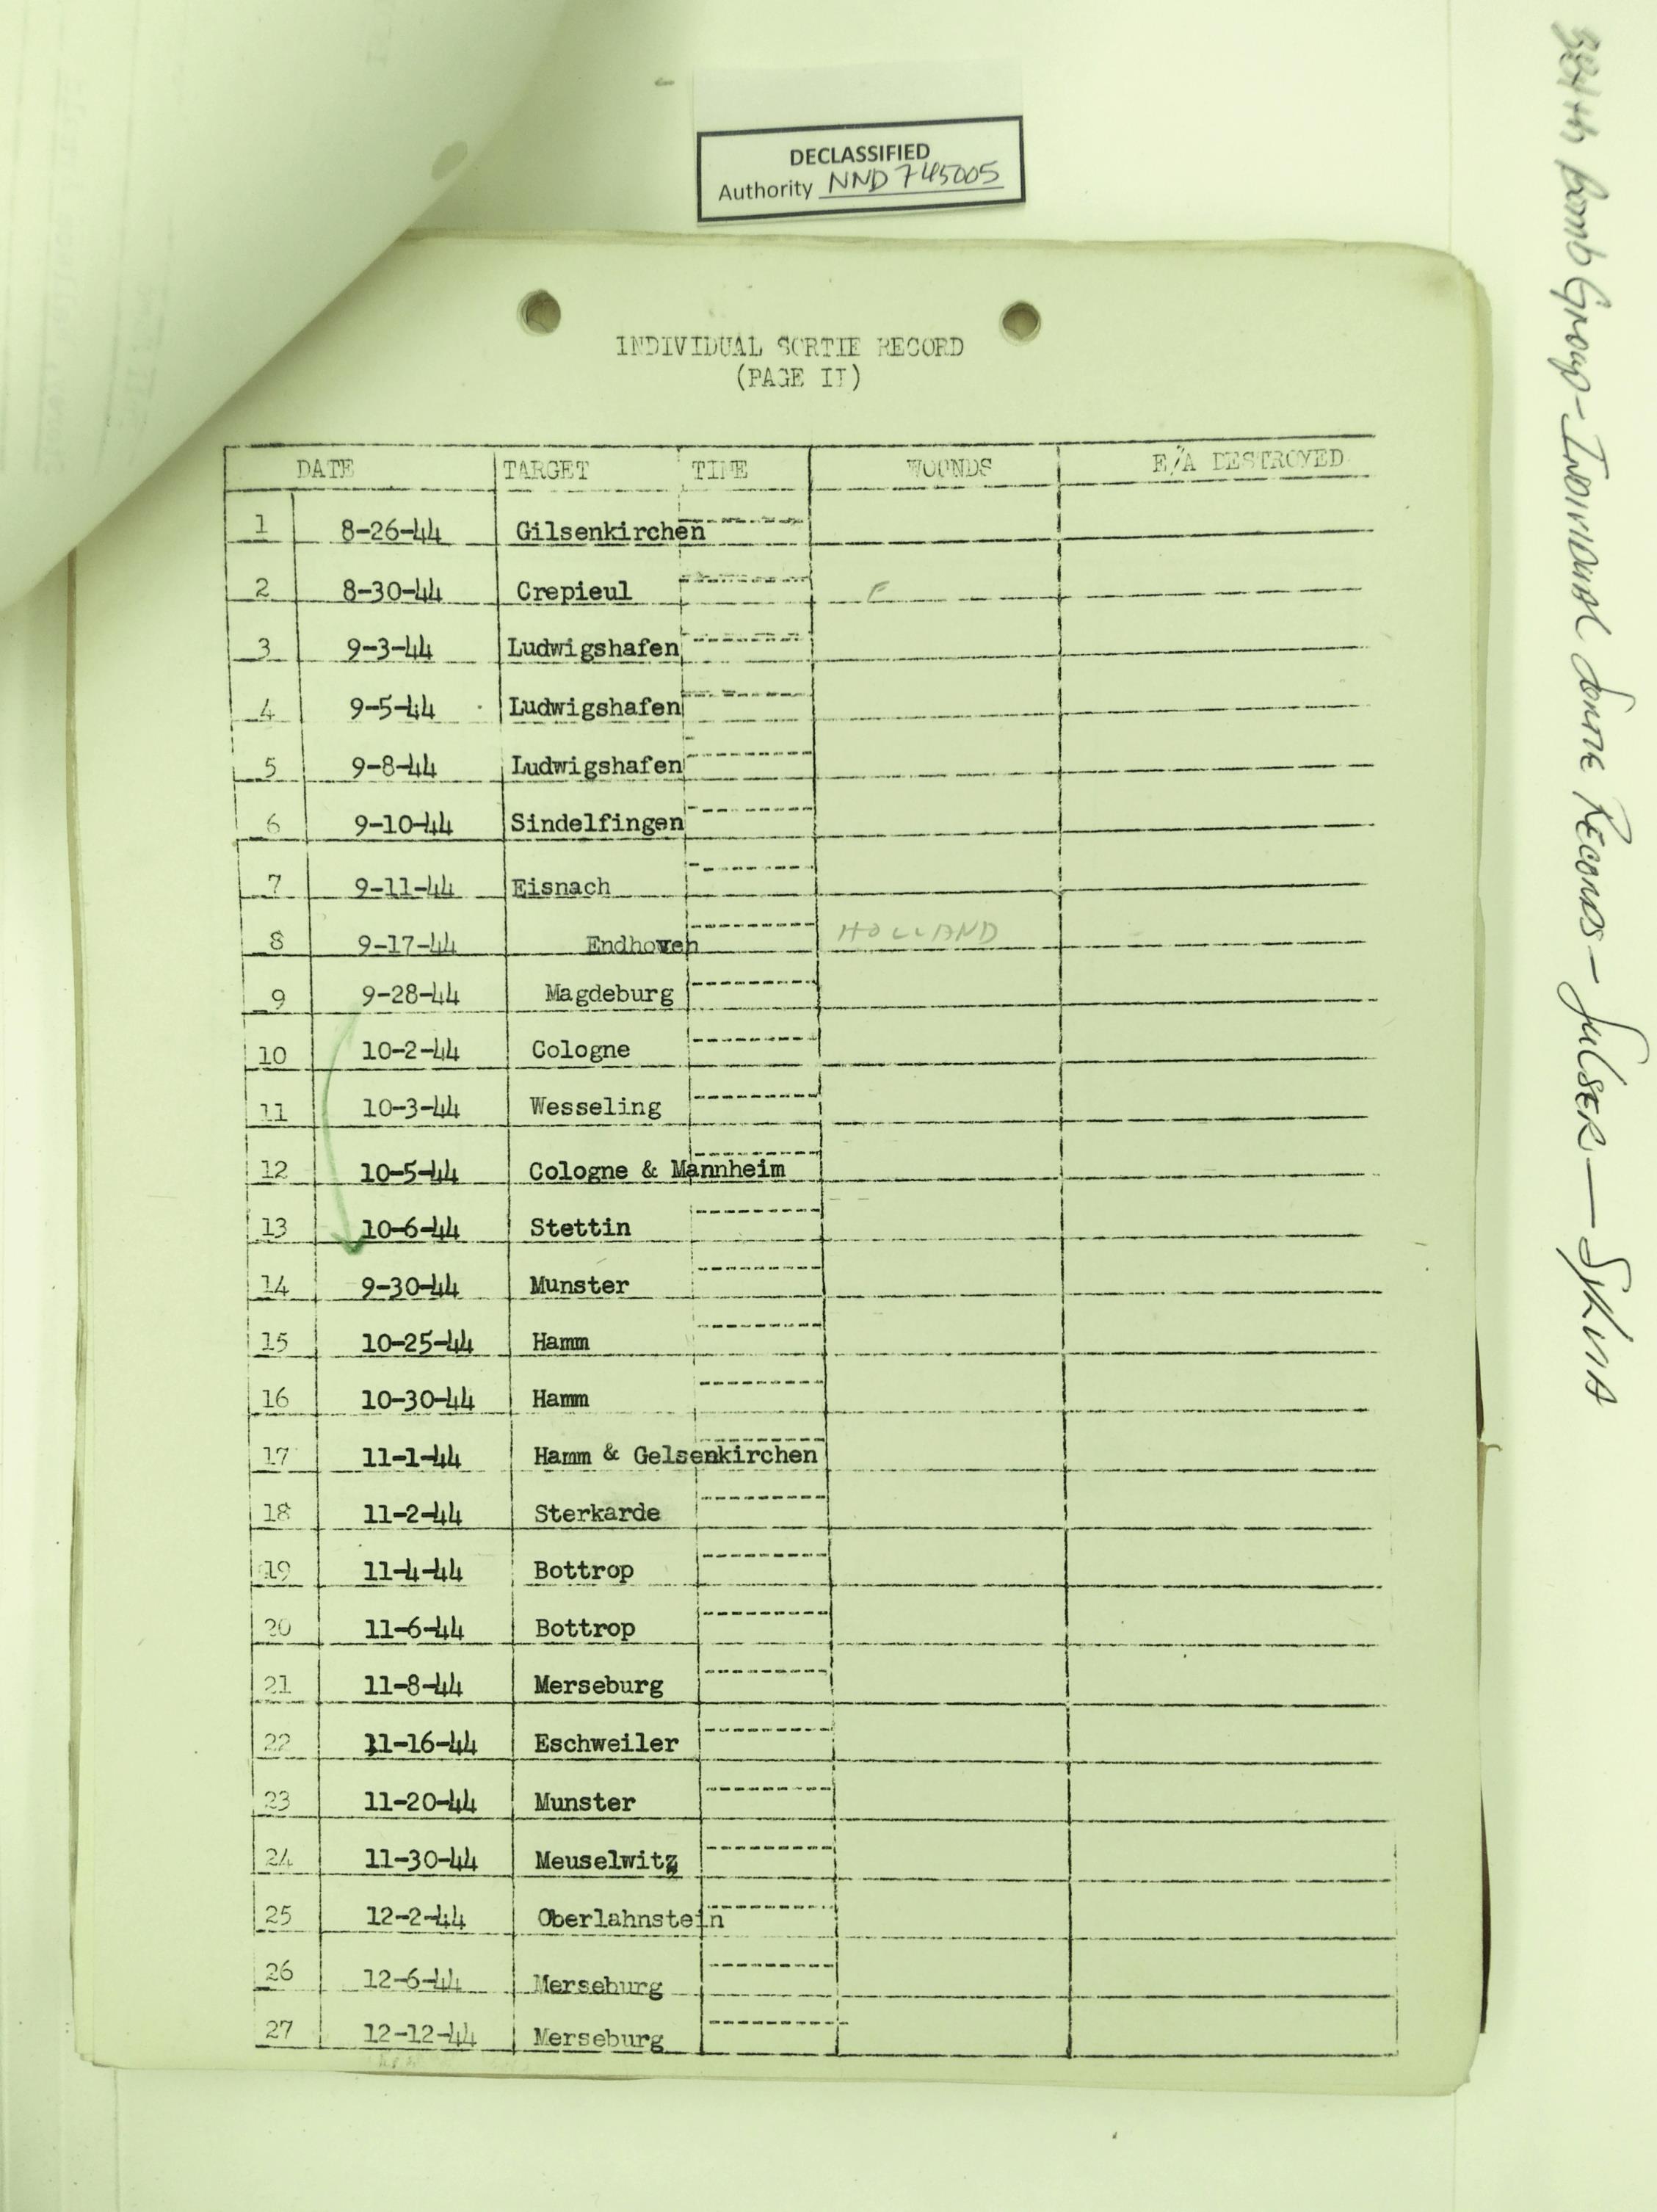 DECLASSIFIED
Authority NND 745005
INDIVIDUAL SORTIE RECORD
(PAGE II)
DATE TARGET TIME WOUNDS E/A DESTROYED
1 8-26-44 Gilsenkirchen
2 8-30-44 Crepieul
3 9-3-44 Ludwigshafen
4 9-5-44 Ludwigshafen
5 9-8-44 Ludwigshafen
6 9-10-44 Sindelfingen
7 9-11-44 Eisnach
8 9-17-44 Endhoven HOLLAND
9 9-28-44 Magdeburg
10 10-2-44 Cologne
11 10-3-44 Wesseling
12 10-5-44 Cologne & Mannheim
13 10-6-44 Stettin
14 9-30-44 Munster
15 10-25-44 Hamm
16 10-30-44 Hamm
17 11-1-44 Hamm & Gelsenkirchen
18 11-2-44 Sterkarde
19 11-4-44 Bottrop
20 11-6-44 Bottrop
21 11-8-44 Merseburg
22 11-16-44 Eschweiler
23 11-20-44 Munster
24 11-30-44 Meuselwitz
25 12-2-44 Oberlahnstein
26 12-6-44 Merseburg
27 12-12-44 Merseburg
384th Bomb Group - INDIVIDUAL SORTIE RECORDS - Sulser — Sykna